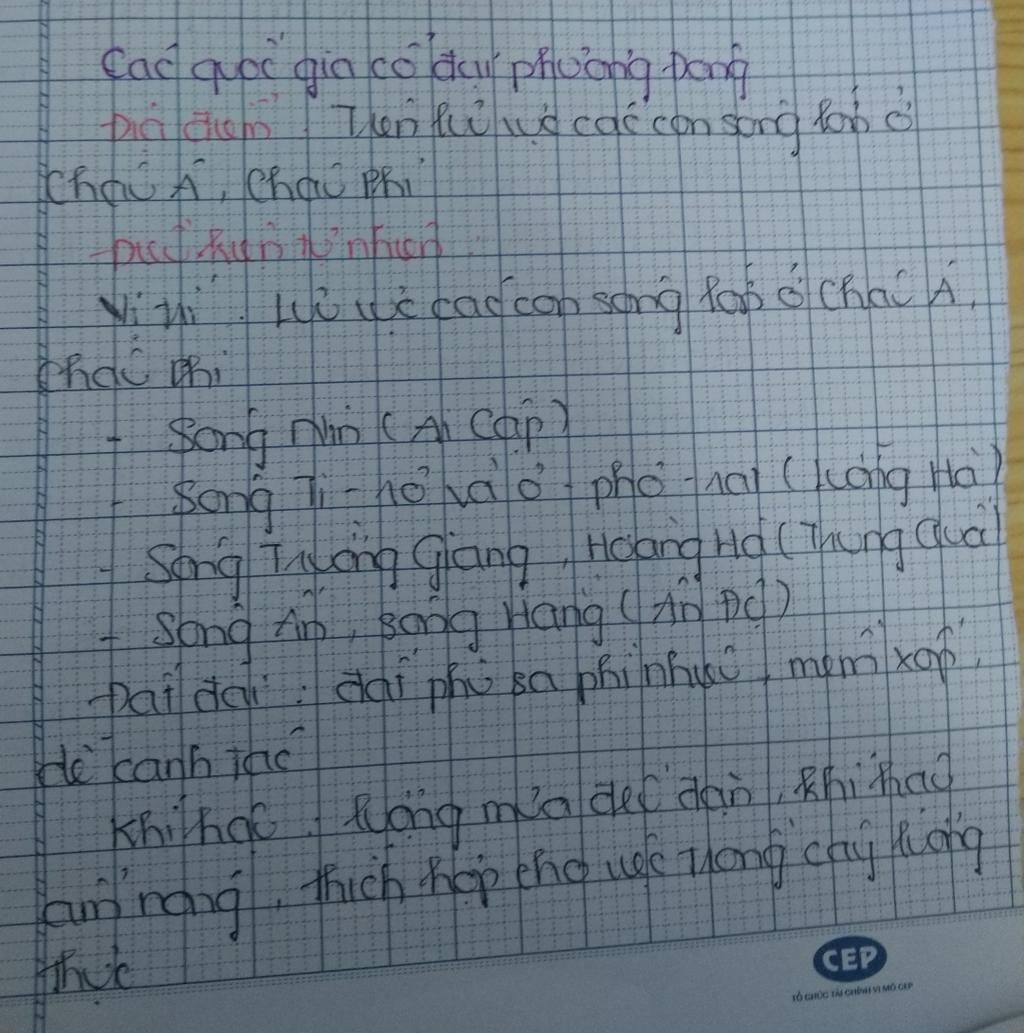 Các quốc gia cổ đại phương Đông
Địa điểm: Trên lưu vực các con sông lớn ở
Châu Á, Châu Phi
Điều kiện tự nhiên:
Vị trí: Lưu vực các con sông lớn ở Châu Á,
Châu Phi
- Sông Nin (Ai Cập)
- Sông Ti-rơ và ơ-phơ-rát (Lưỡng Hà)
- Sông Trường Giang, Hoàng Hà (Trung Quốc)
- Sông Ấn, sông Hằng (Ấn Độ)
Đất đai: đất phù sa phì nhiêu, mềm xốp,
dễ canh tác
Khí hậu: lượng mưa đều đặn, khí hậu
ấm nóng, thích hợp cho việc trồng cây lương
thực
CEP
TỔ CHỨC TÀI CHÍNH VI MÔ CEP